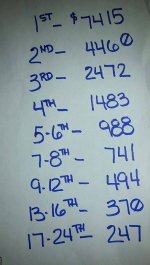 1ST - $7415
2ND - 4460
3RD - 2472
4TH - 1483
5-6TH - 988
7-8TH - 741
9-12TH - 494
13-16TH - 370
17-24TH - 247